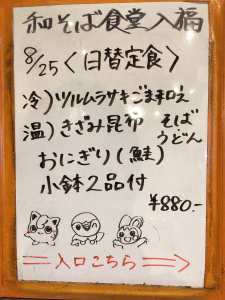 和そば食堂入福
8/25〈日替定食〉
冷)ツルムラサキごま和え
温)きざみ昆布 そば
うどん
おにぎり(鮭)
小鉢2品付
¥880.-
入口こちら